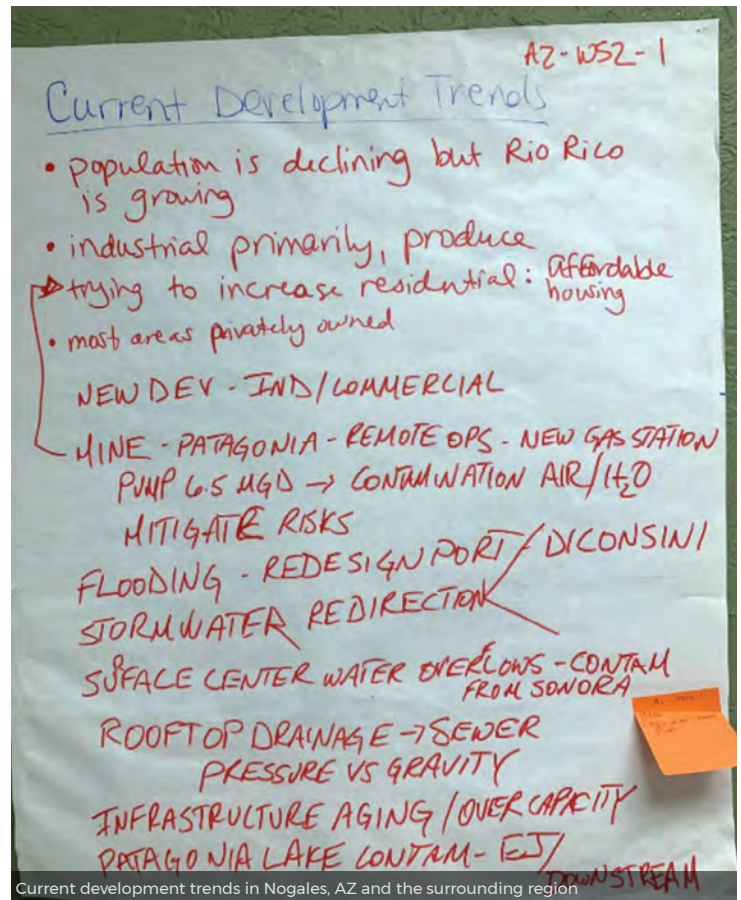 AZ-WS2-1
Current Development Trends
• population is declining but Rio Rico
is growing
• industrial primarily, produce
trying to increase residential: Affordable
housing
• most areas privately owned
NEW DEV - IND/COMMERCIAL
MINE - PATAGONIA - REMOTE OPS - NEW GAS STATION
PUMP 6.5 MGD → CONTAMINATION AIR/H₂O
MITIGATE RISKS
FLOODING - REDESIGN PORT / DICONSINI
STORMWATER REDIRECTION
SURFACE CENTER WATER OVERFLOWS - CONTAM
FROM SONORA
ROOFTOP DRAINAGE → SEWER
PRESSURE VS GRAVITY
INFRASTRUCTURE AGING / OVER CAPACITY
PATAGONIA LAKE CONTAM - EJ/
DOWNSTREAM
Current development trends in Nogales, AZ and the surrounding region